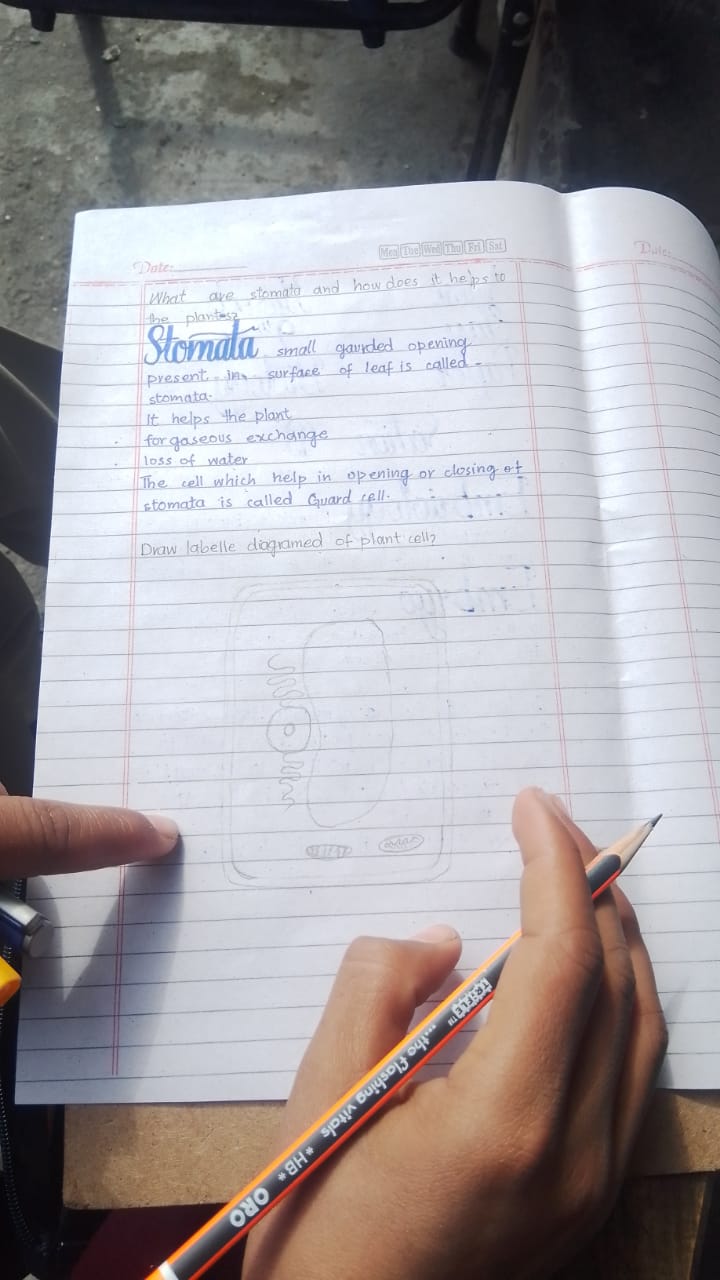 Mon Tue Wed Thu Fri Sat
Date:
Date:
What are stomata and how does it helps to
the plantes?
Stomata small gaurded opening
present in surface of leaf is called
stomata.
It helps the plant
for gaseous exchange
loss of water
The cell which help in opening or closing of
stomata is called Guard cell.
Draw labelle diagramed of plant cell?
...the flashing vitals
*HB* ORO